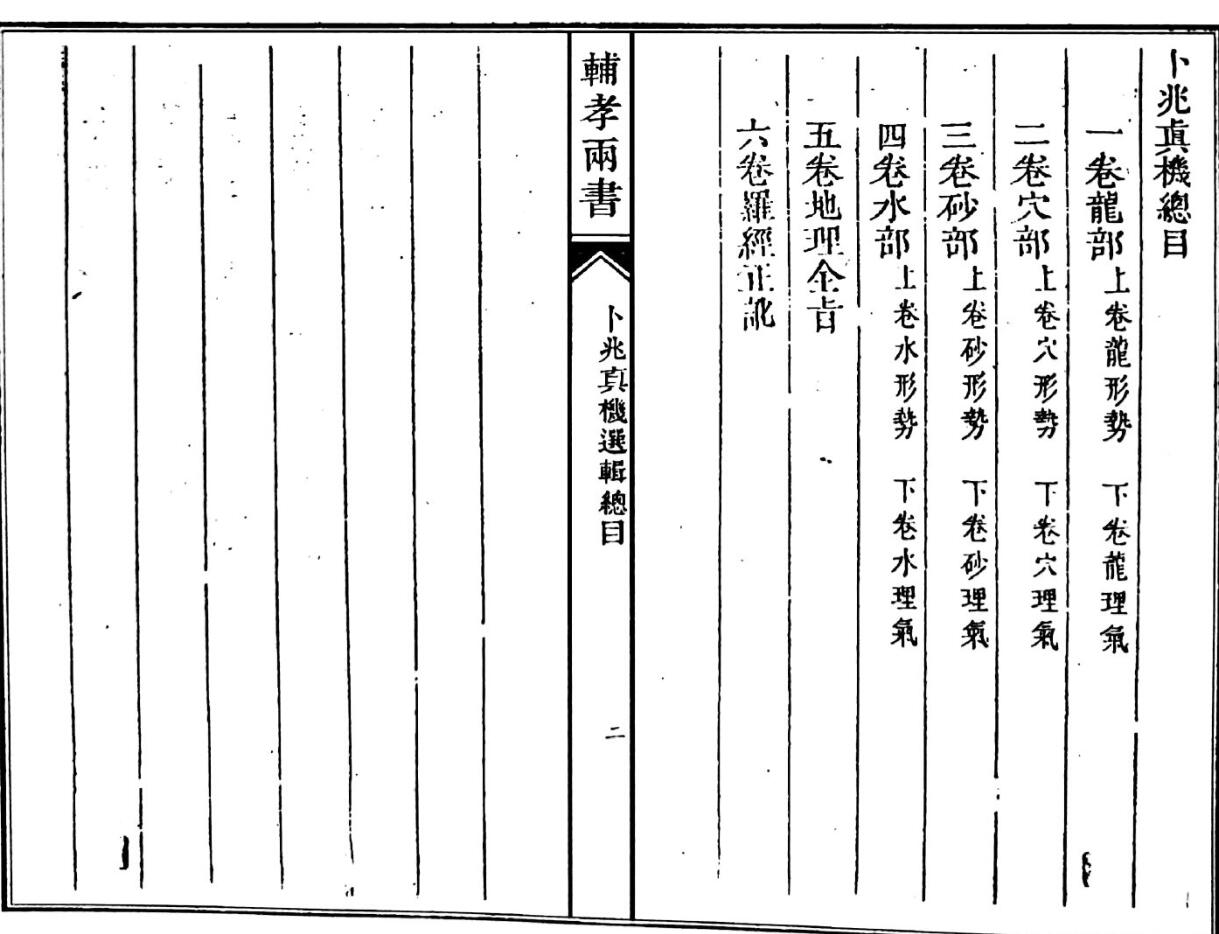 卜兆眞機總目
一卷龍部 上卷龍形勢 下卷龍理氣
二卷穴部 上卷穴形勢 下卷穴理氣
三卷砂部 上卷砂形勢 下卷砂理氣
四卷水部 上卷水形勢 下卷水理氣
五卷地理全旨
六卷羅經正訛
輔孝兩書
卜兆真機選輯總目
二